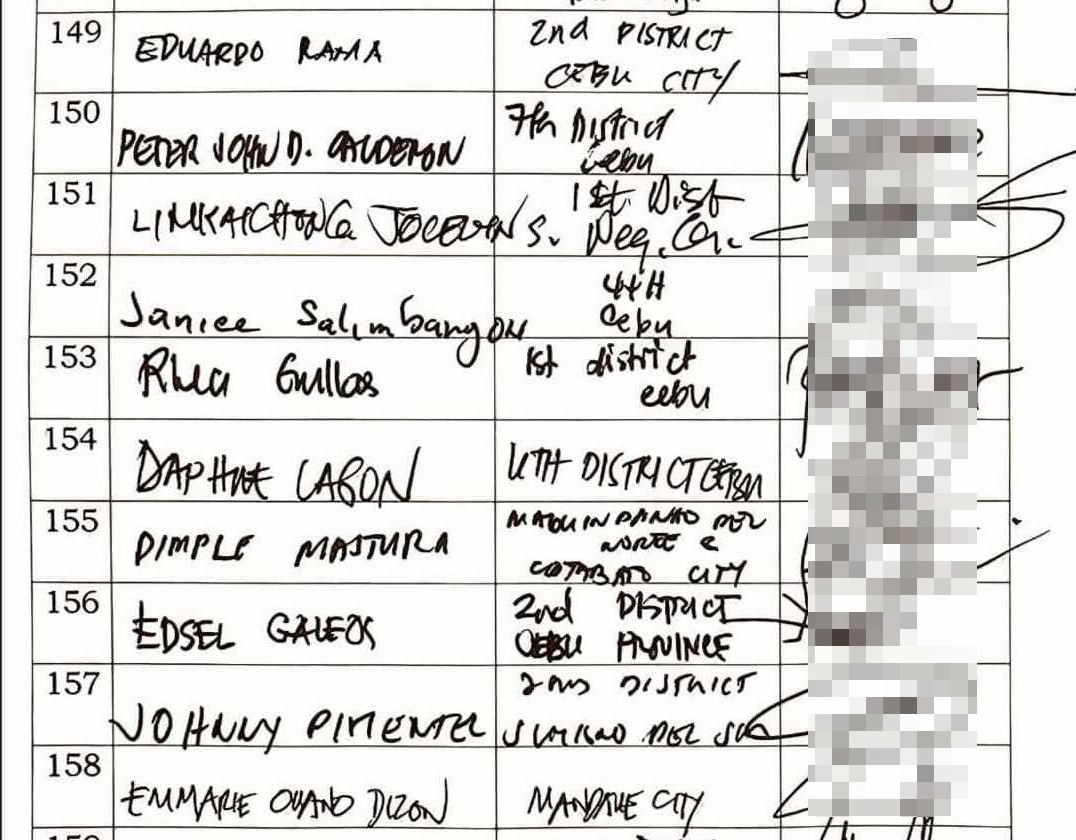 149
EDUARDO RAMA
2nd DISTRICT
CEBU CITY
150
PETER JOHN D. CALDERON
7th District
Cebu
151
LIMKAICHONG JOCELYN S.
1st Dist
Neg. Or.
152
Janice Salimbangon
4tH
Cebu
153
Rhea Gullas
1st district
cebu
154
DAPHNE LAGON
6TH DISTRICT CEBU
155
DIMPLE MASTURA
MAGUINDANAO DEL
NORTE &
COTABATO CITY
156
EDSEL GALEOS
2nd DISTRICT
CEBU PROVINCE
157
JOHNNY PIMENTEL
2ND DISTRICT
SURIGAO DEL SUR
158
EMMARIE OUANO DIZON
MANDAUE CITY